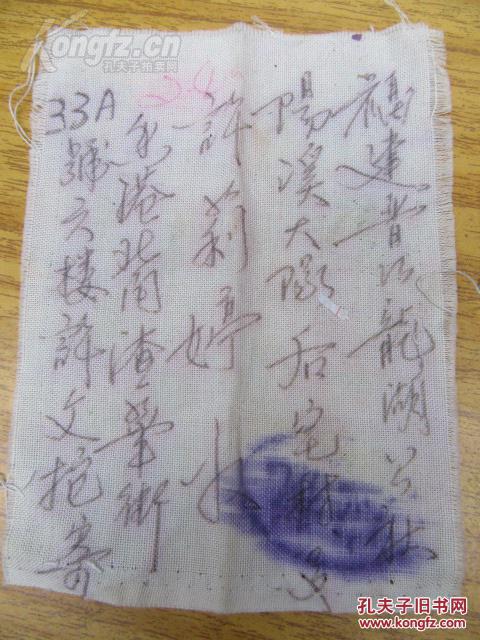 福建晋江龍湖公社
陽溪大隊后宅村交
許莉婷收
香港北角渣華街
33A
號六樓許文挖寄
kongfz.cn
孔夫子旧书网
孔夫子旧书网
KONGFZ.COM